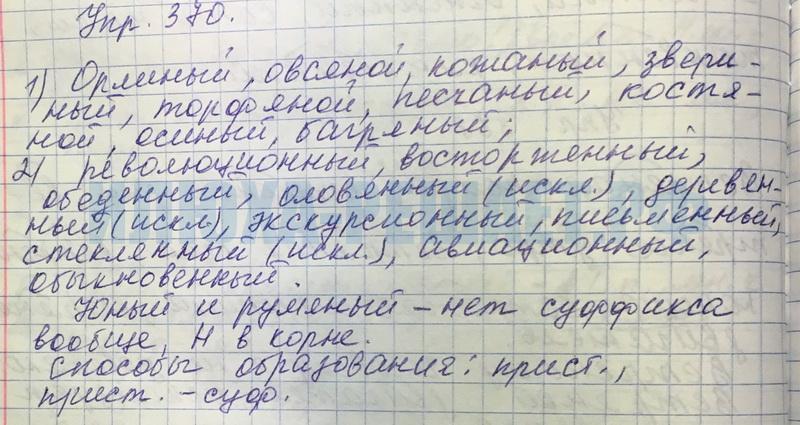 Упр. 370.
1) Орлиный, овсяной, кожаный, звери-
ный, торфяной, песчаный, костя-
ной, осиный, багряный;
2) революционный, восторженный,
обеденный, оловянный (искл.), деревян-
ный (искл.), экскурсионный, письменный,
стеклянный (искл.), авиационный,
обыкновенный.
Юный и румяный – нет суффикса
вообще, Н в корне.
Способы образования: прист.,
прист. – суф.